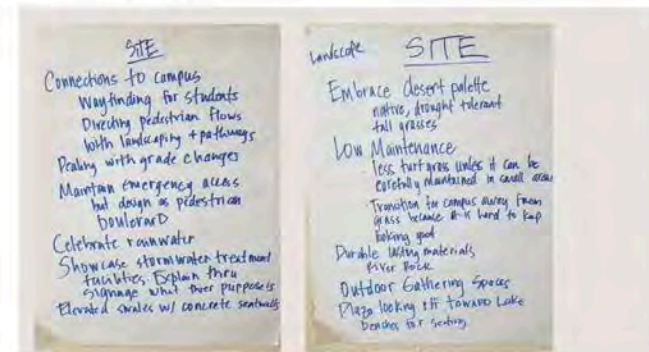 SITE
Connections to campus
Wayfinding for students
Directing pedestrian flows
with landscaping + pathways
Dealing with grade changes
Maintain emergency access
but design as pedestrian
boulevard
Celebrate rainwater
Showcase stormwater treatment
facilities. Explain thru
signage what their purpose is
Elevated swales w/ concrete seatwalls
Landscape SITE
Embrace desert palette
native, drought tolerant
tall grasses
Low Maintenance
less turf grass unless it can be
carefully maintained in small areas
· Transition for campus away from
grass because it is hard to keep
looking good
Durable lasting materials
River Rock
Outdoor Gathering Spaces
Plaza looking off toward Lake
benches for seating